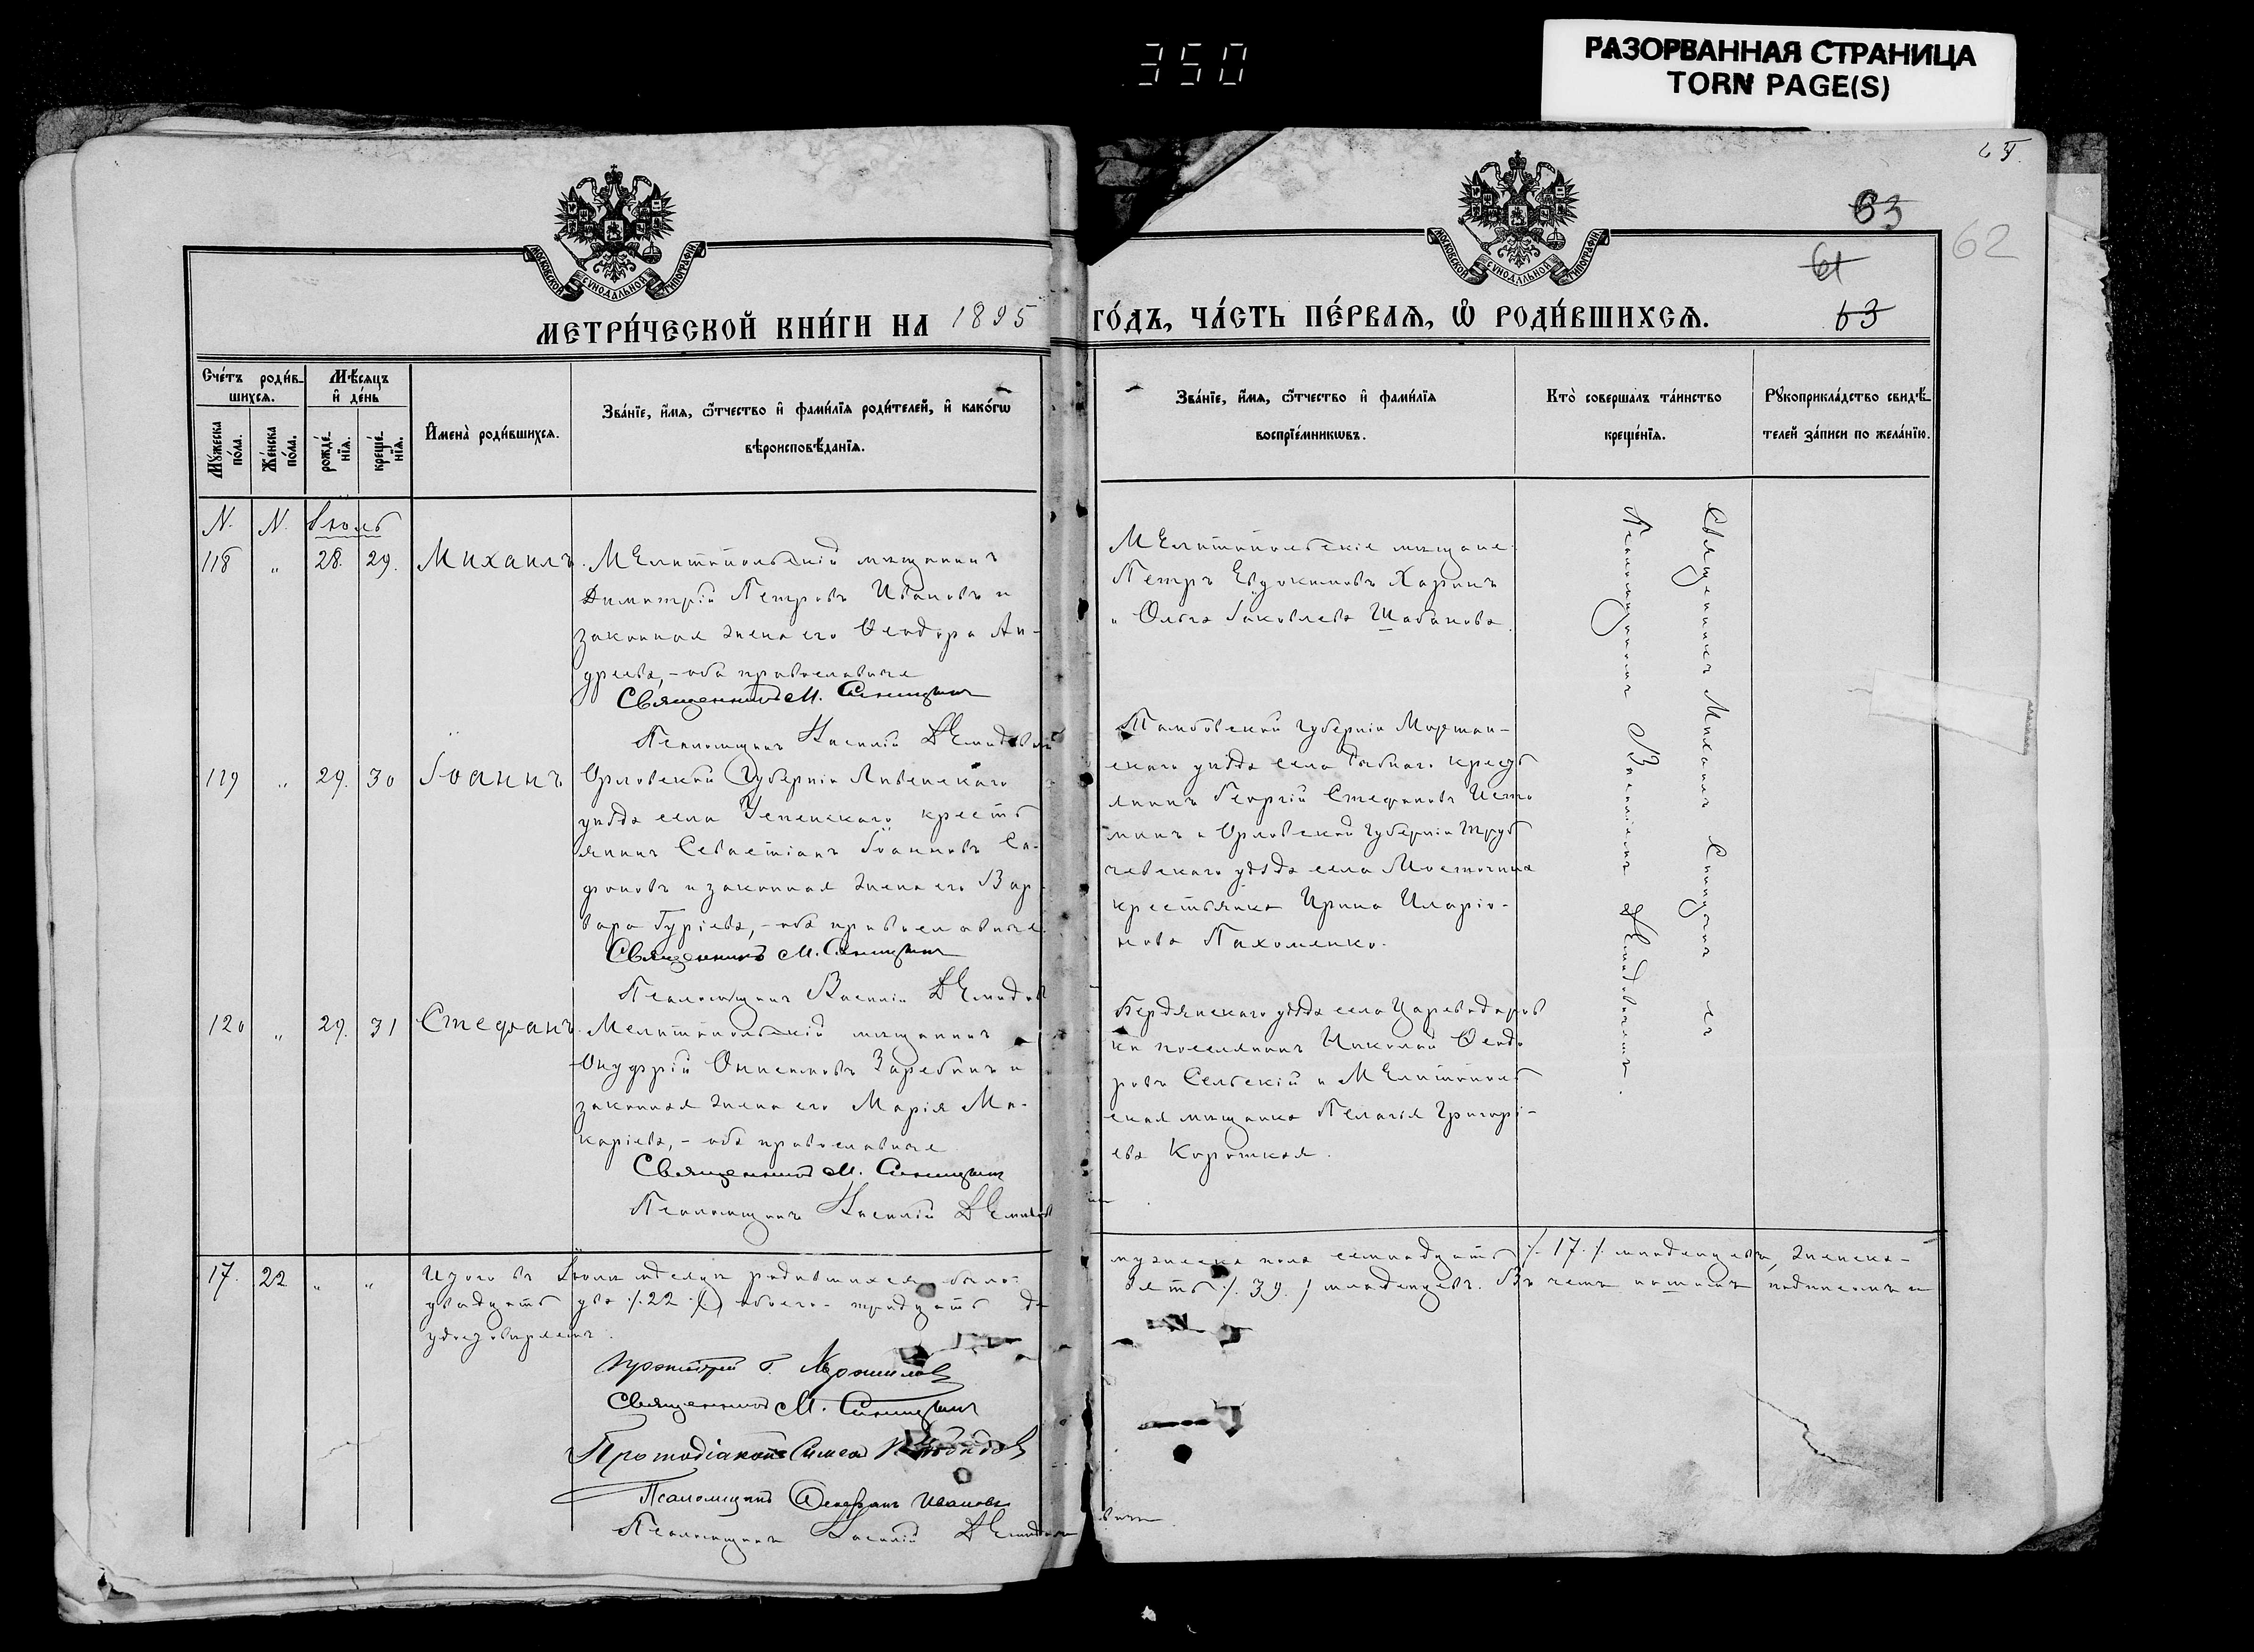 350
РАЗОРВАННАЯ СТРАНИЦА
TORN PAGE(S)
63
62
61
63
МОСКОВСКОЙ СѴНОДАЛЬНОЙ ТИПОГРАФІИ
МОСКОВСКОЙ СѴНОДАЛЬНОЙ ТИПОГРАФІИ
МЕТРИ́ЧЕСКОЙ КНИ́ГИ НА 1895
ГО́ДЪ, ЧА́СТЬ ПЕ́РВАѦ, Ѡ РОДИ́ВШИХСѦ.
Сче́тъ роди́в-
шихсѧ.
Мꙋ́жеска по́ла.
Же́нска по́ла.
Мѣ́сѧцъ
и҆ де́нь
рожде́-нїѧ.
креще́-нїѧ.
И҆мена̀ роди́вшихсѧ.
Зва́нїе, и҆́мѧ, ѻ҆́тчество и҆ фами́лїѧ роди́телей, и҆ како́гѡ
вѣроисповѣ́данїѧ.
Зва́нїе, и҆́мѧ, ѻ҆́тчество и҆ фами́лїѧ
воспрїе́мникѡвъ.
Кто̀ соверша́лъ та́инство
креще́нїѧ.
Рꙋкоприкла́дство свидѣ́-
телей за́писи по жела́нїю.
N. N. Іюль
118 " 28. 29. Михаилъ. Мелитопольскій мѣщанинъ
Димитрій Петровъ Ивановъ и
законная жена его Ѳеодора Ан-
дреева, - оба православные
Священникъ М. Синицынъ
Псаломщикъ Василій Демидовичъ
Мелитопольскіе мѣщане:
Петръ Евдокимовъ Харинъ
и Ольга Іаковлева Шабанова.
119 " 29. 30 Іоаннъ Орловской Губерніи Ливенскаго
уѣзда села Успенскаго кресть
янинъ Севастіанъ Іоанновъ Са-
фоновъ и законная жена его Вар-
вара Гуріева, - оба православные.
Священникъ М. Синицынъ
Псаломщикъ Василій Демидов
Тамбовской губерніи Моршан-
скаго уѣзда села кресть
янинъ Георгій Стефановъ Исто
минъ и Орловской губерніи Труб
чевскаго уѣзда села
крестьянка Ирина Иларіо-
нова Пахоменко.
120 " 29. 31 Стефанъ. Мелитопольскій мѣщанинъ
Онуфрій Онисимовъ Заребинъ и
законная жена его Марія Ма-
каріева, - оба православные
Священникъ М. Синицынъ
Псаломщикъ Василій Демидов
Бердянскаго уѣзда села Цареводаров
ки поселянинъ Николай Ѳеодо
ровъ Сельскій и Мелитополь
ская мѣщанка Пелагія Григорі-
ева Короткая.
Священникъ Михаилъ Синицынъ съ
Псаломщикомъ Василіемъ Демидовичемъ.
17. 22 " " Итого въ Іюлѣ мѣсяцѣ родившихся было:
мужеска пола семнадцать /. 17. / младенцевъ, женска-
двадцать два /. 22 ./ а обоего - тридцать де
вять /. 39. / младенцевъ. Въ чемъ нашимъ подписомъ и
удостовѣряемъ.
Протоіерей
Священникъ М. Синицынъ
Протодіаконъ Симеон
Псаломщикъ Стефанъ Ивановъ
Псаломщикъ Василій Демидовичъ